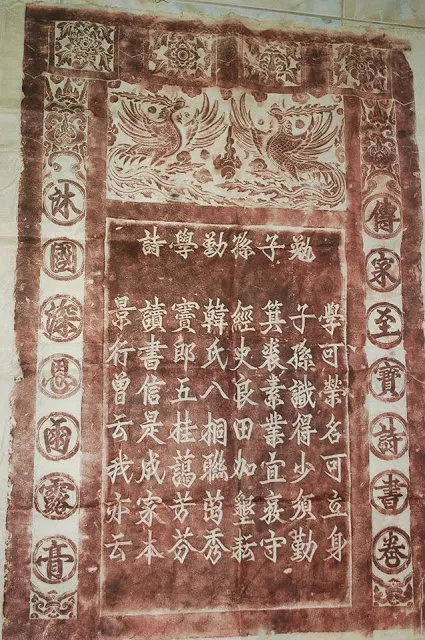 勉子孫勤學詩
學可榮名可立身
子孫識得少須勤
箕裘素業宜守
經史良田加墾耘
韓氏八桐聯茁秀
竇郎五桂藹芳芬
讀書信是成家本
景行曾云我亦云
傳家至寶詩書卷
沐國深恩雨露膏